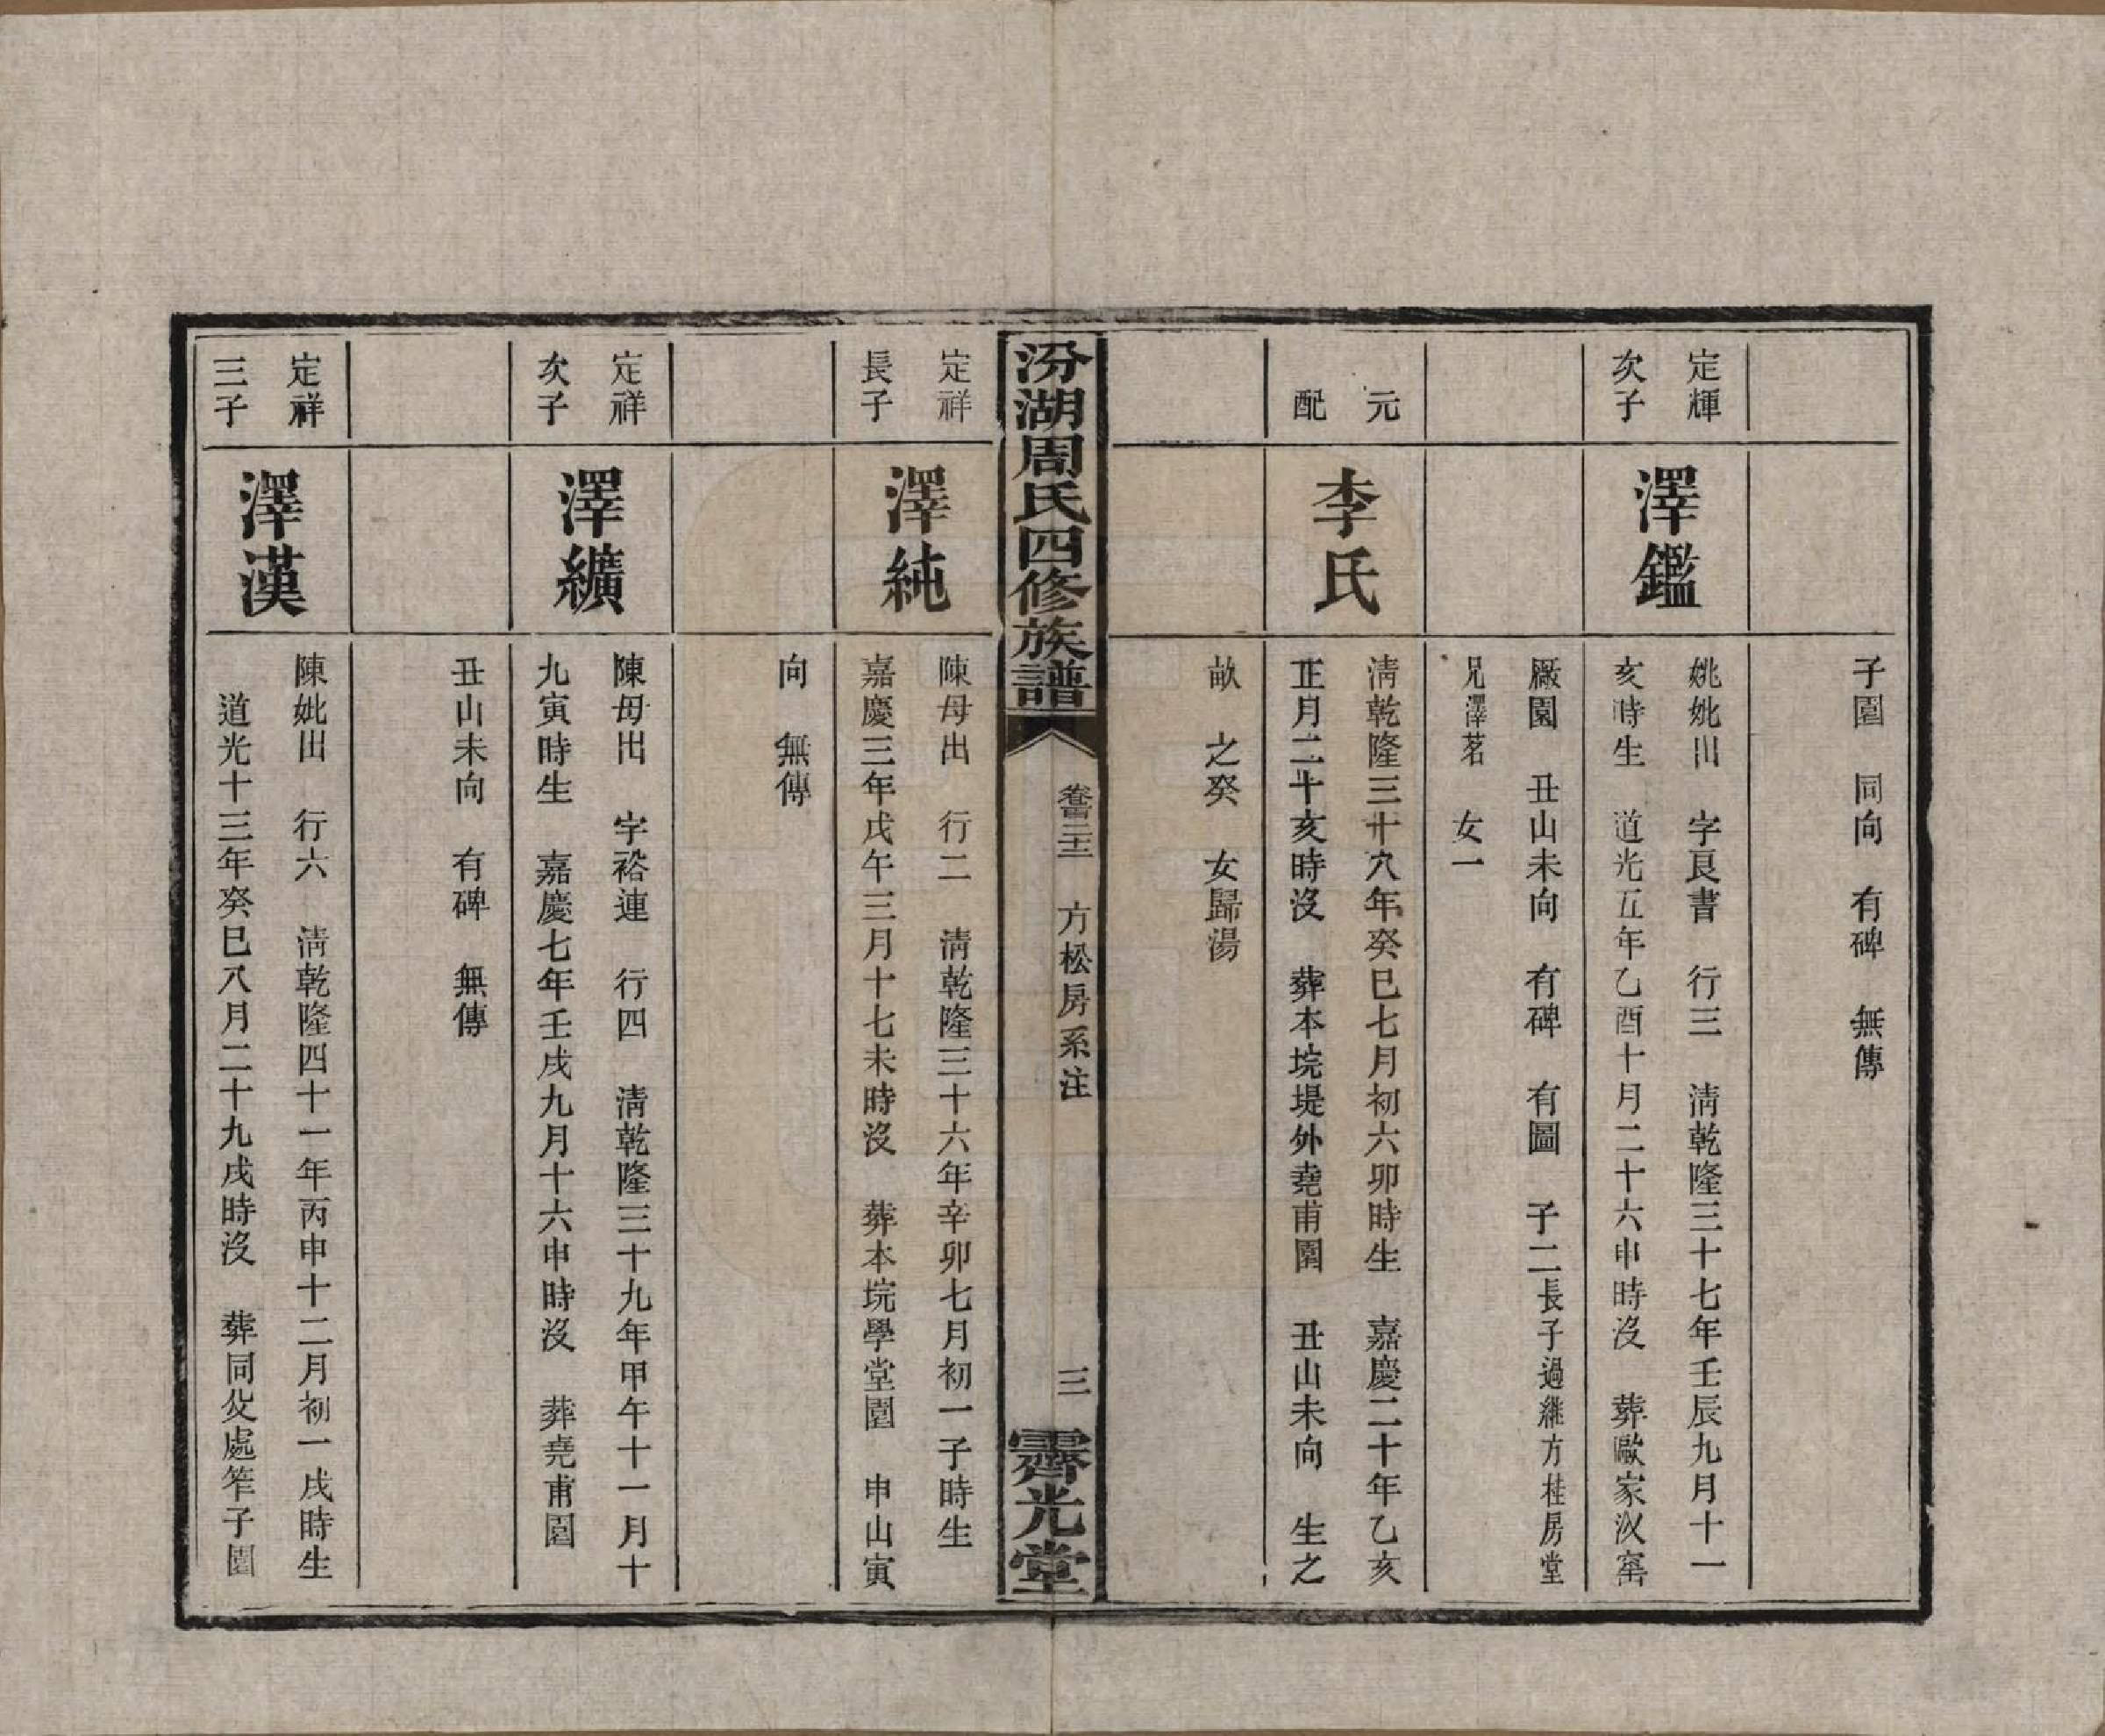 子園　同向　有碑　無傳
定輝
次子
澤鑑
姚妣出　字良書　行三　清乾隆三十七年壬辰九月十一
亥時生　道光五年乙酉十月二十六申時沒　葬歐家汊窰
廠園　丑山未向　有碑　有圖　子二長子過繼方桂房堂
兄澤茗　女一
元
配
李氏
清乾隆三十八年癸巳七月初六卯時生　嘉慶二十年乙亥
正月二十亥時沒　葬本垸堤外堯甫園　丑山未向　生之
畝　之癸　女歸湯
汾湖周氏四修族譜
方松房系注
三
霽光堂
定祥
長子
澤純
陳母出　行二　清乾隆三十六年辛卯七月初一子時生
嘉慶三年戊午三月十七未時沒　葬本垸學堂園　申山寅
向　無傳
定祥
次子
澤纊
陳母出　字裕連　行四　清乾隆三十九年甲午十一月十
九寅時生　嘉慶七年壬戌九月十六申時沒　葬堯甫園
丑山未向　有碑　無傳
定祥
三子
澤漢
陳妣出　行六　清乾隆四十一年丙申十二月初一戌時生
道光十三年癸巳八月二十九戌時沒　葬同處笮子園